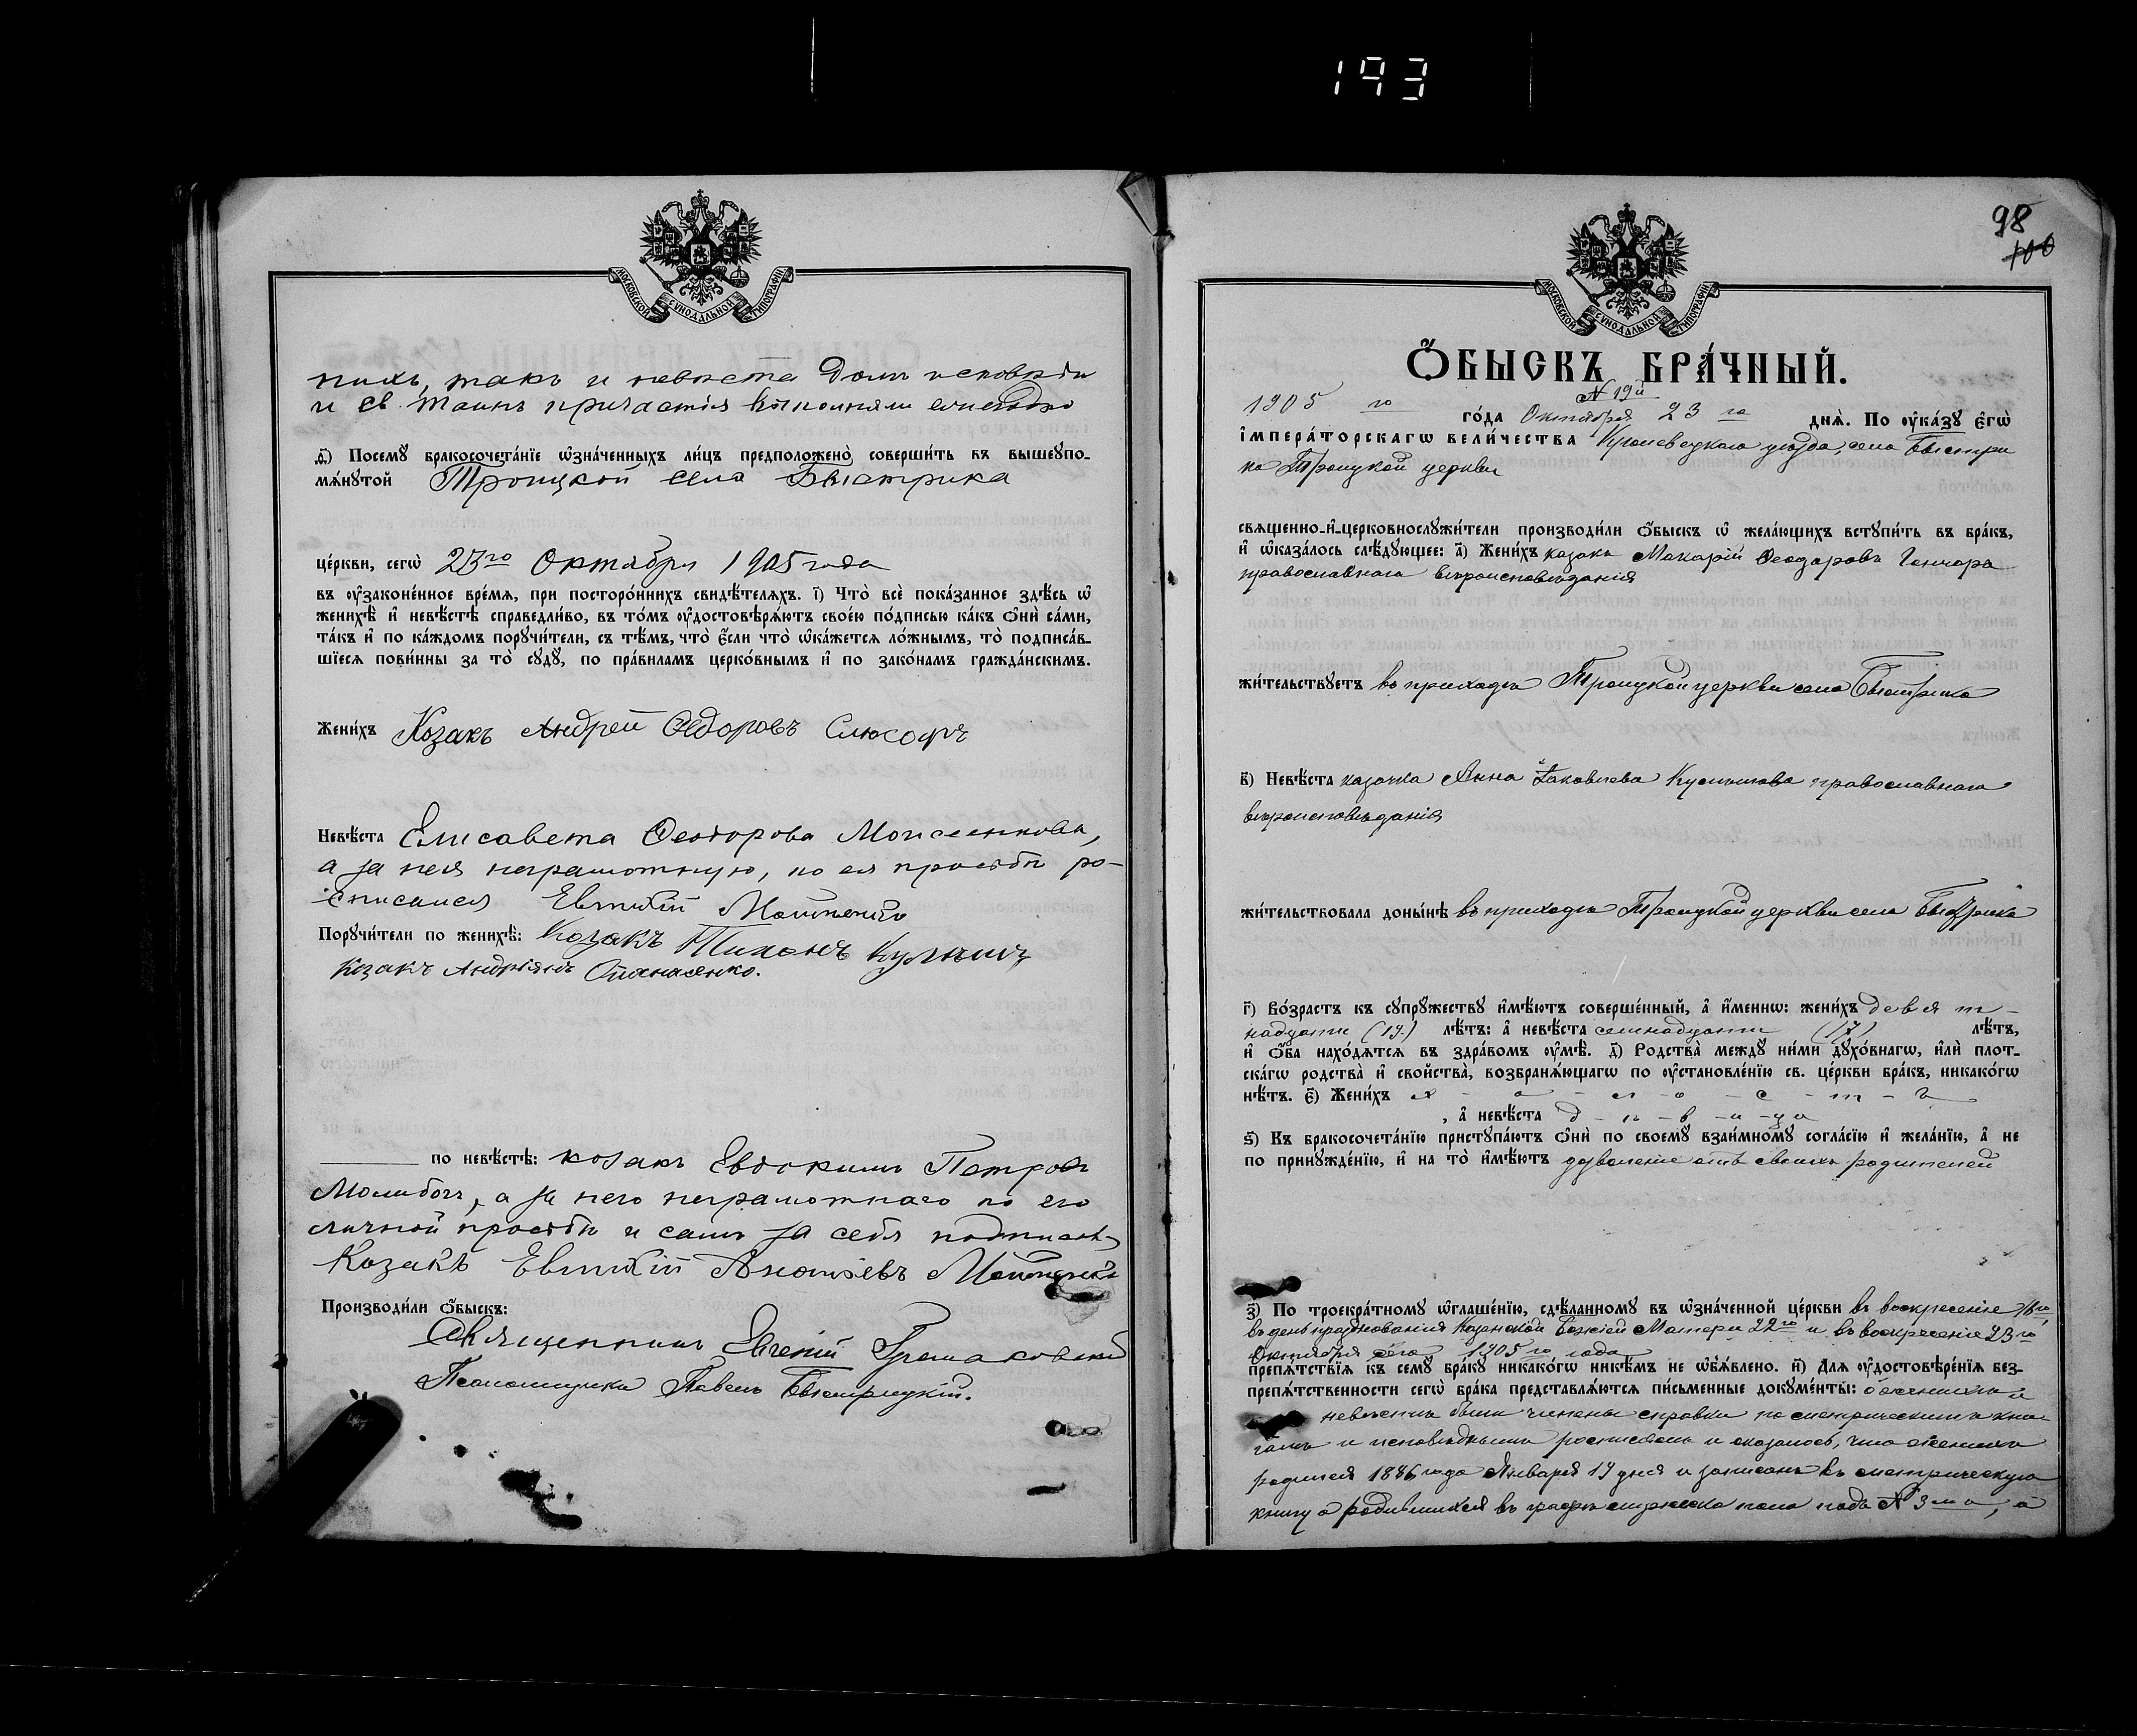 193
МОСКОВСКОЙ СѴНОДАЛЬНОЙ ТИПОГРАФІИ
нихъ, такъ и невѣста долгъ исповѣди
и св. таинъ причастія исполняли ежегодно
ѳ҃) Посемꙋ̀ бракосочета́нїе ѡ҆зна́ченныхъ ли́цъ предположено̀ соверши́ть въ вышеꙋпо-
мѧ́нꙋтой Троицкой села Быстрика
це́ркви, сегѡ̀ 23го Октября 1905 года
въ ᲂу҆зако́ненное вре́мѧ, при посторо́ннихъ свидѣ́телѧхъ. і҃) Что̀ всѐ пока́занное здѣ́сь ѡ҆
женихѣ̀ и҆ невѣ́стѣ справедли́во, въ то́мъ ᲂу҆достовѣрѧ́ютъ свое́ю по́дписью ка́къ ѻ҆нѝ са́ми,
та́къ и҆ по ка́ждомъ порꙋчи́тели, съ тѣ́мъ, что̀ є҆́сли что̀ ѡ҆ка́жетсѧ ло́жнымъ, то̀ подписа́в-
шїесѧ пови́нны за то̀ сꙋдꙋ̀, по пра́виламъ церко́внымъ и҆ по зако́намъ гражда́нскимъ.
Жени́хъ Козакъ Андрей Ѳедоровъ Слюсарь
Невѣ́ста Елисавета Ѳеодорова Моисеенкова,
а за нея неграмотную, по ея просьбѣ ро-
списался Евтихій
Порꙋчи́тели по женихѣ̀: Козакъ Тихонъ
Козакъ Андріянъ Опанасенко.
по невѣ́стѣ: козакъ Евдокимъ Петровъ
а за него неграмотнаго по его
личной просьбѣ и самъ за себя подписалъ
Козакъ Евтихій
Производи́ли ѻ҆́быскъ:
Священникъ Евгеній
Псаломщикъ Павелъ Быстрицкій.
98
100
МОСКОВСКОЙ СѴНОДАЛЬНОЙ ТИПОГРАФІИ
Ѻ҆́БЫСКЪ БРА́ЧНЫЙ.
№ 19й
1905 го го́да Октября 23 го днѧ̀. По ᲂу҆ка́зꙋ є҆гѡ̀
і҆мпера́торскагѡ вели́чества Кролевецкаго уѣзда, села Быстри
ка Троицкой церкви
свѧщенно-и҆-церковнослꙋжи́тели производи́ли ѻ҆́быскъ ѡ҆ жела́ющихъ встꙋпи́ть въ бра́къ,
и҆ ѡ҆каза́лось слѣ́дꙋющее: а҃) Жени́хъ казакъ Макарій Ѳеодоровъ Гончаръ
православнаго вѣроисповѣданія
жи́тельствꙋетъ въ приходѣ Троицкой церкви села Быстрика
в҃) Невѣ́ста казачка Анна Іаковлева православнаго
вѣроисповѣданія
жи́тельствовала доны́нѣ въ приходѣ Троицкой церкви села Быстрика
г҃) Во́зрастъ къ сꙋпрꙋ́жествꙋ и҆мѣ́ютъ соверше́нный, а҆ и҆́меннѡ: жени́хъ девят-
надцати (19) лѣ́тъ: а҆ невѣ́ста семнадцати (17) лѣ́тъ,
и҆ ѻ҆́ба нахо́дѧтсѧ въ здра́вомъ ᲂу҆мѣ̀. д҃) Родства̀ междꙋ̀ ни́ми дꙋхо́внагѡ, и҆лѝ плот-
ска́гѡ родства̀ и҆ свойства̀, возбранѧ́ющагѡ по ᲂу҆становле́нїю св. це́ркви бра́къ, никако́гѡ
нѣ́тъ. є҃) Жени́хъ х - о - л - о - с - т - ъ
, а҆ невѣ́ста д - ѣ - в - и - ца
ѕ҃) Къ бракосочета́нїю пристꙋпа́ютъ ѻ҆нѝ по своемꙋ̀ взаи́мномꙋ согла́сїю и҆ жела́нїю, а҆ не
по принꙋжде́нїю, и҆ на то̀ и҆мѣ́ютъ дозволеніе отъ своихъ родителей
з҃) По троекра́тномꙋ ѡ҆глаше́нїю, сдѣ́ланномꙋ въ ѡ҆зна́ченной це́ркви въ воскресеніе 16го,
въ день празднованія Казанской Божіей Матери 22го и въ воскресеніе 23го
Октября сего 1905го года
препѧ́тствїѧ къ семꙋ̀ бра́кꙋ никако́гѡ никѣ́мъ не ѡ҆б̾ѧ́влено. и҃) Длѧ ᲂу҆достовѣре́нїѧ без-
препѧ́тственности сегѡ̀ бра́ка представлѧ́ютсѧ пи́сьменные докꙋме́нты: о женихѣ и
невѣстѣ были чинены справки по метрическимъ кни
гамъ и исповѣднымъ росписямъ и оказалось, что женихъ
родился 1886 года Января 19 дня и записанъ въ метрическую
книгу о родившихся въ графѣ мужеска пола подъ № 3мъ, а